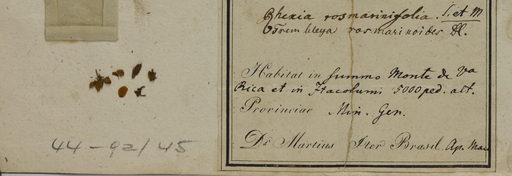 Rhexia rosmarinifolia. S. et M
Trembleya rosmarinoides DC.
Habitat in summo Monte de Va
Rica et in Itacolumi 5000 ped. alt.
Provinciae Min. Gen.
Dr Martius Iter Brasil. Apr. Mai
44-92/45